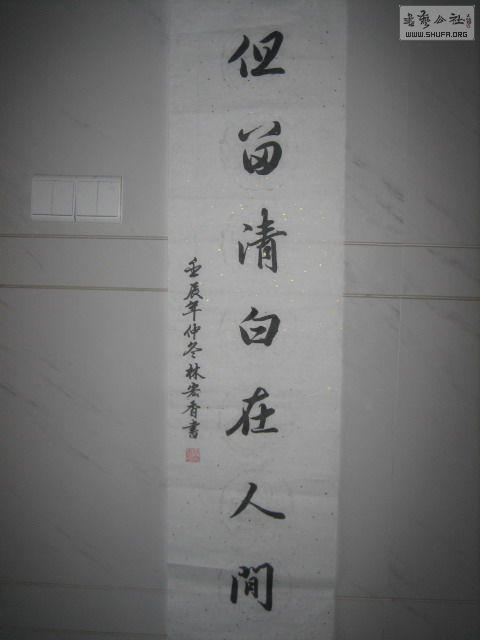 但留清白在人間
壬辰年仲冬林宏香書
書藝公社
WWW.SHUFA.ORG